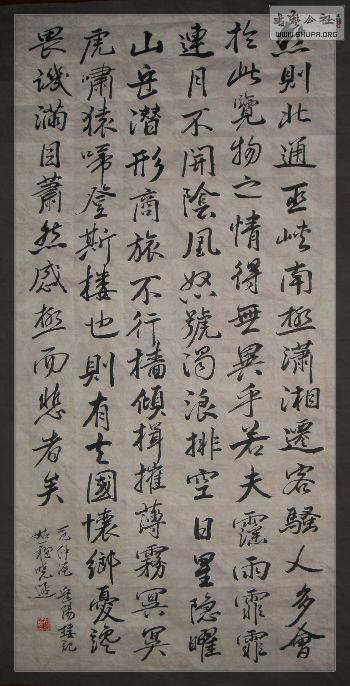 然則北通巫峽南極瀟湘遷客騷人多會
於此覽物之情得無異乎若夫霪雨霏霏
連月不開陰風怒號濁浪排空日星隐曜
山岳潛形商旅不行檣傾楫摧薄霧冥冥
虎嘯猿啼登斯楼也則有去國懷鄉憂讒
畏譏滿目蕭然感極而悲者矣
范仲淹岳陽樓記
书艺公社
WWW.SHUFA.ORG